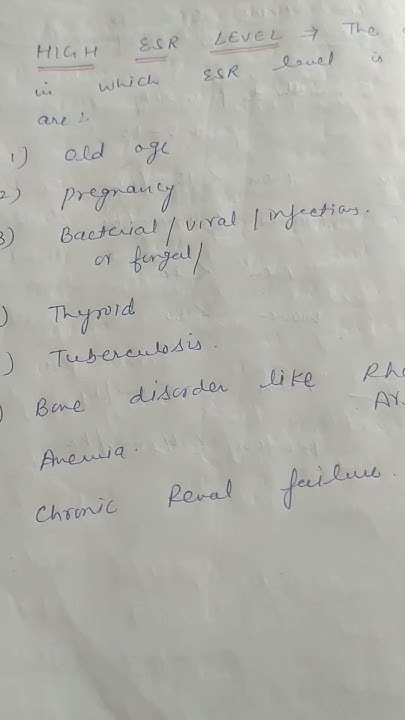 HIGH ESR LEVEL → The
in which ESR level is
are :
1) old age
2) pregnancy
3) Bacterial / viral / infections.
or fungal /
) Thyroid
) Tuberculosis.
) Bone disorder like Rh
Ar
Anemia.
Chronic Renal failure.